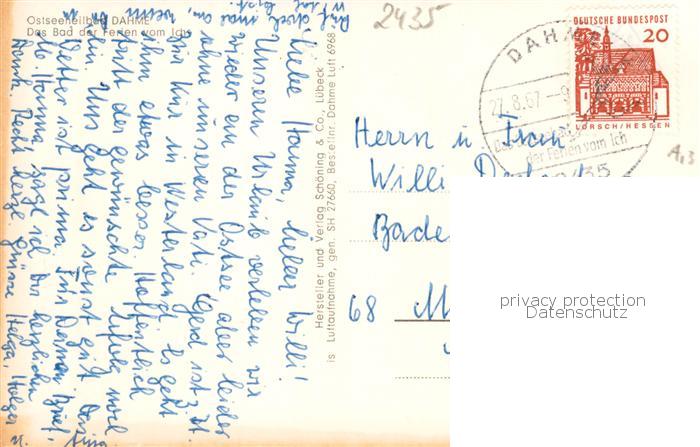 Ostseeheilbad DAHME
Das Bad der Ferien vom Ich
2435
Liebe Hanna, lieber Willi!
Unseren Urlaub verleben wir
wieder an der Ostsee aber leider
ohne unseren Vati. Gerd ist z. Zt.
zur Kur in Westerland. Es geht
ihm etwas besser. Hoffentlich
tritt der gewünschte Erfolg noch
ein. Uns geht es sonst gut. Das
Wetter ist prima. Für Deinen Brief,
lb. Hanna, sage ich Dir herzlichen
Dank. Recht herzl. Grüsse Helga, Holger
u.
Ruf doch mal
an, wenn
Hersteller und Verlag Schöning & Co., Lübeck
is Luftaufnahme, gen. SH 27660, Best.elnr. Dahme Luft 6968
DEUTSCHE BUNDESPOST
20
LORSCH/HESSEN
DAHME
22.8.67 -9
der Ferien vom Ich
A13
Herrn u. Frau
Willi
Bade
68 M
privacy protection
Datenschutz